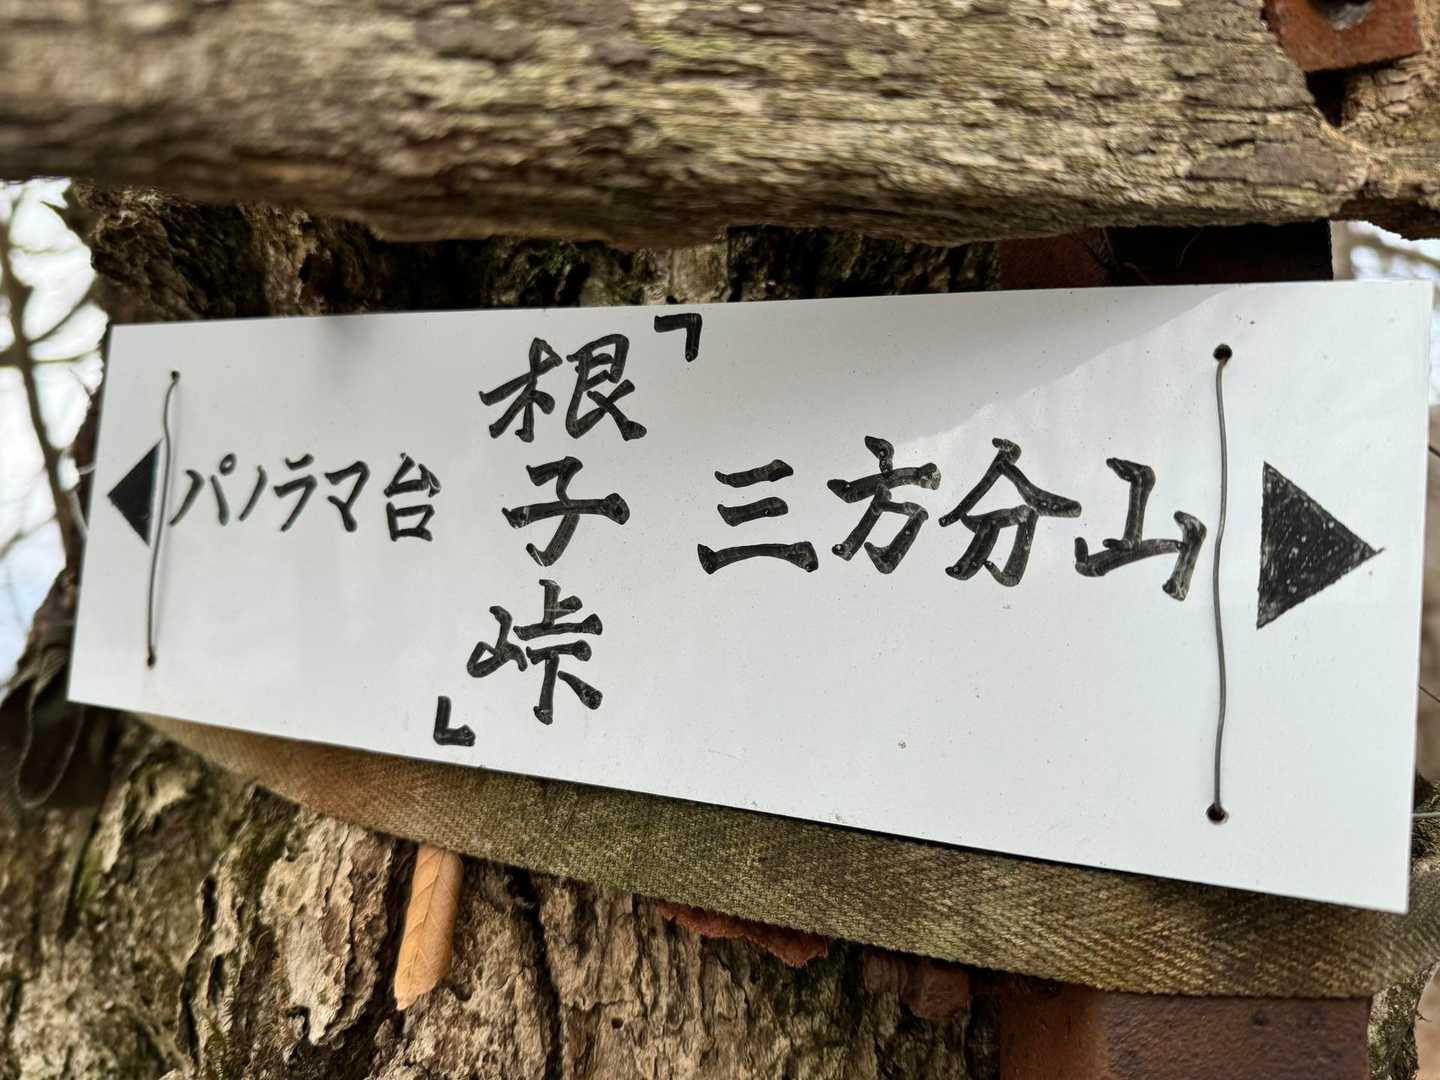 ◀パノラマ台
「根子峠」
三方分山▶